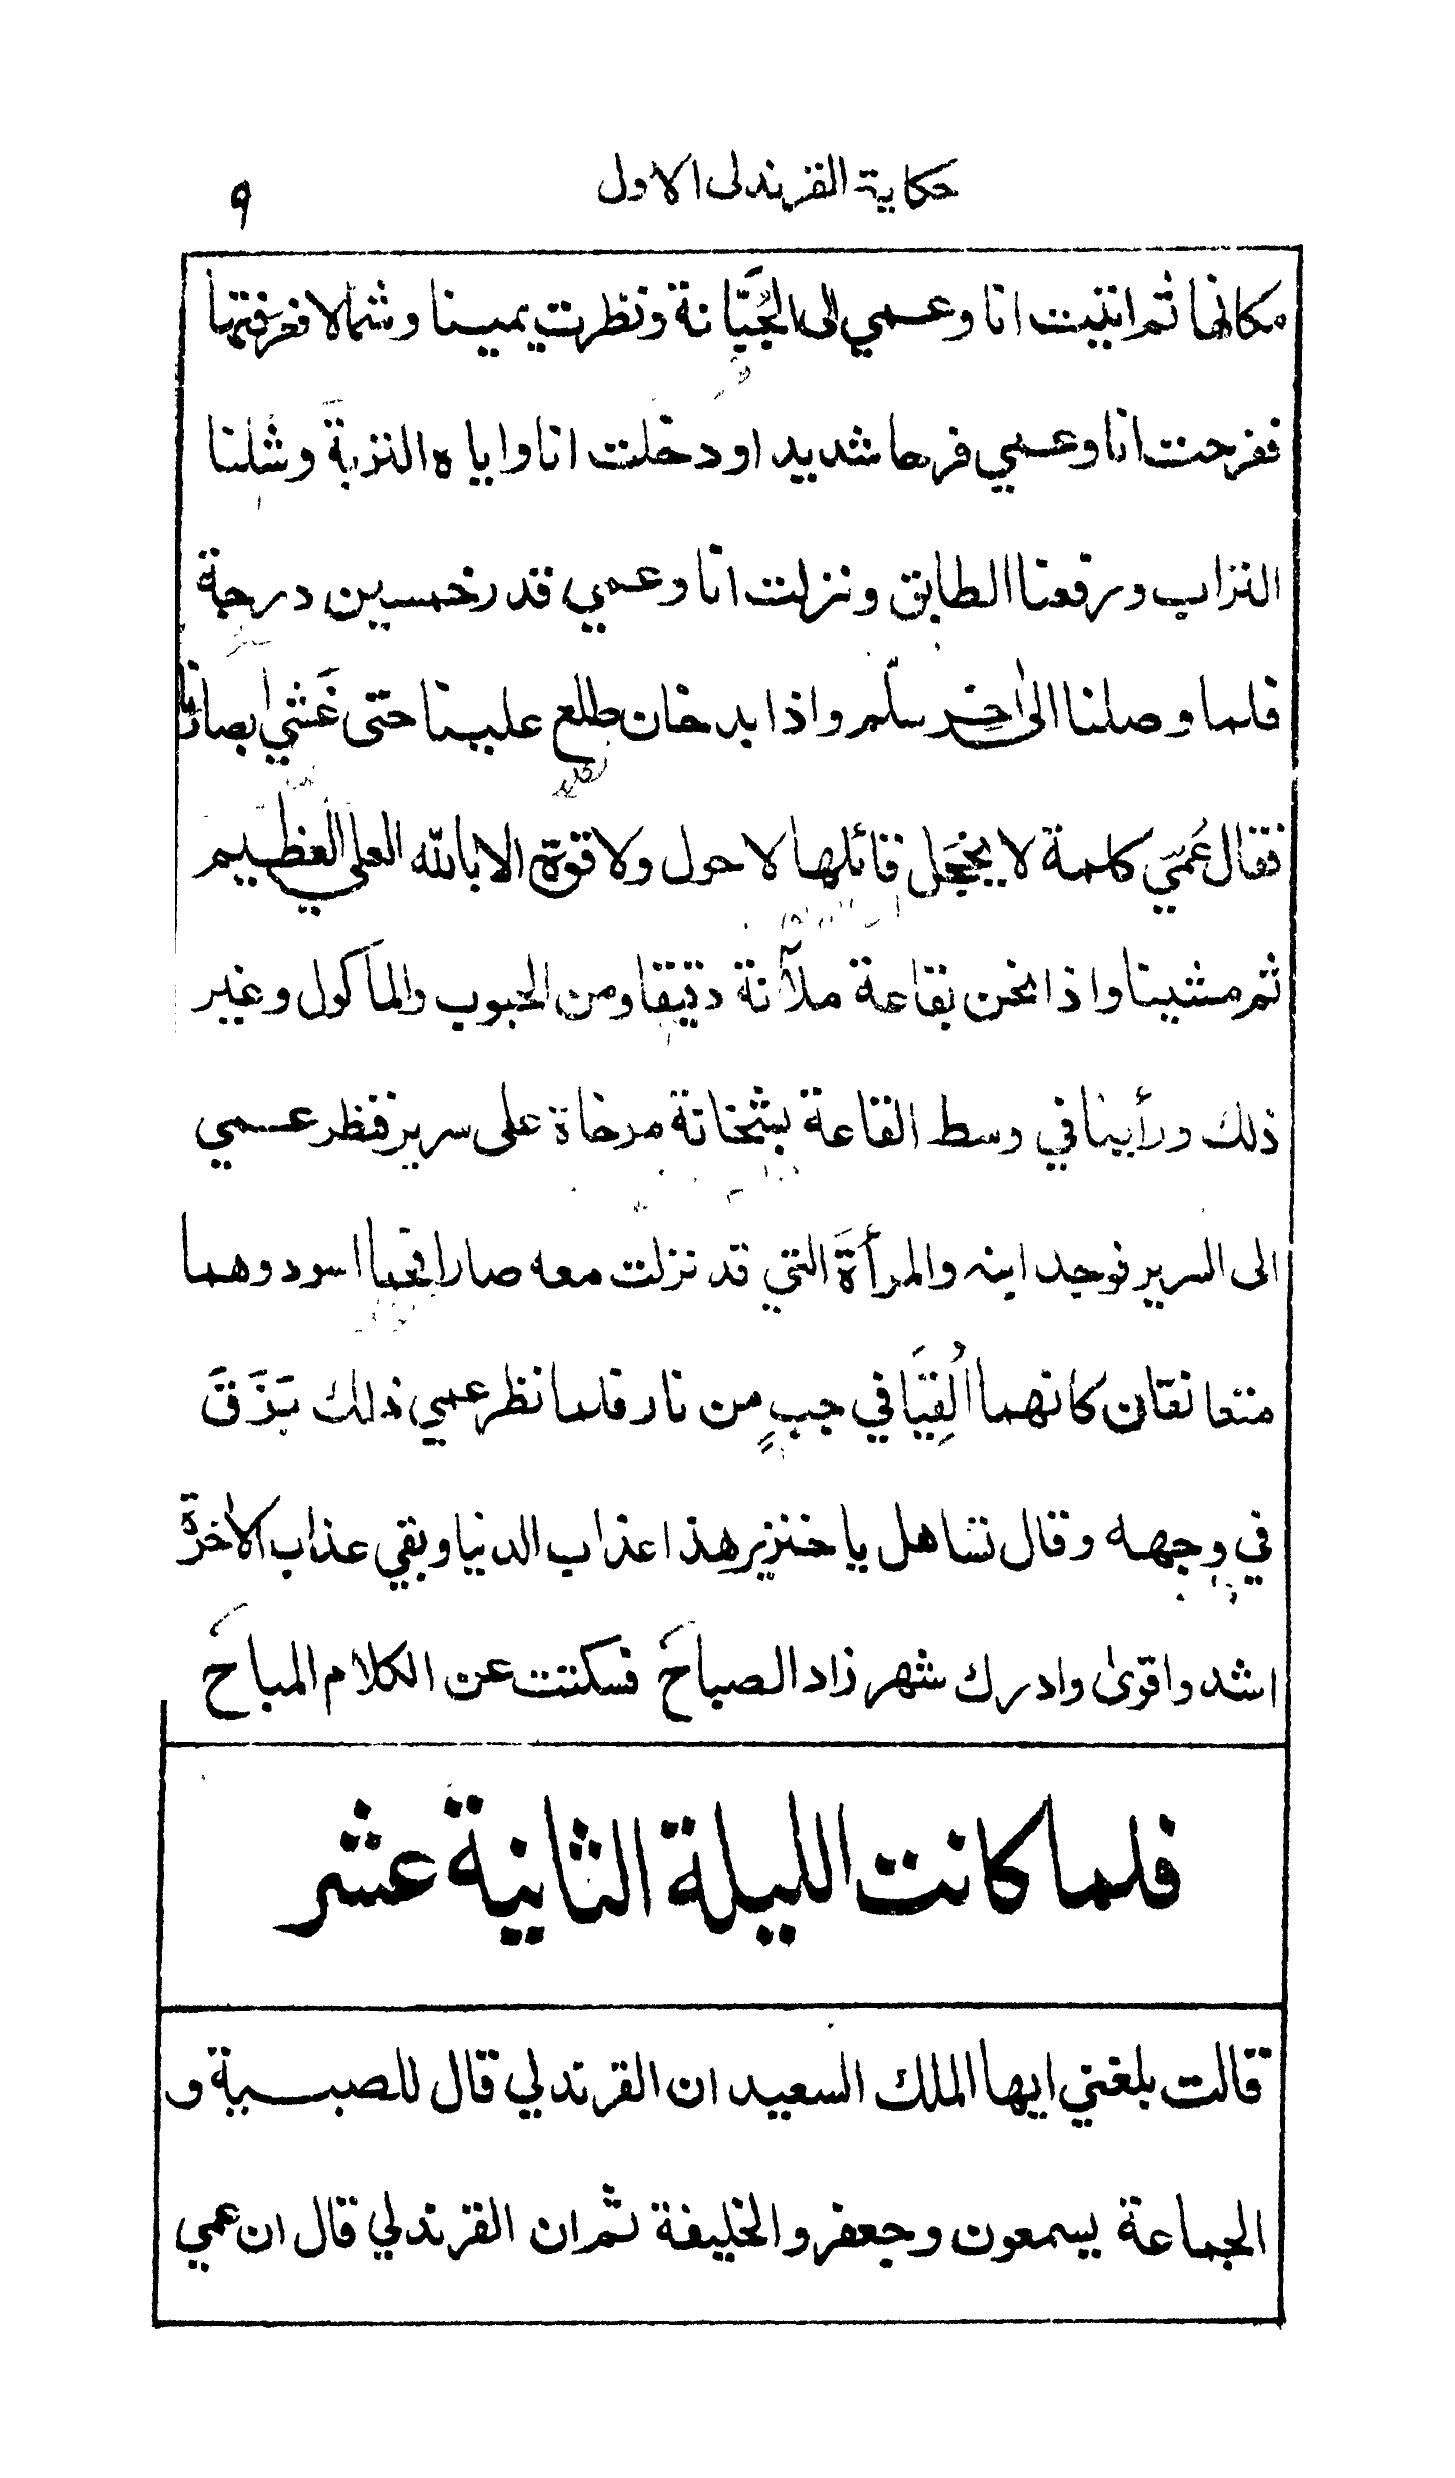 حكاية القرندلى الاول
٩
مكانها ثم اتيت انا وعمي الى الجُبَّانة ونظرت يمينا وشمالا فعرفتها
ففرحت انا وعمي فرحا شديدا ودخلت انا واياه التربةَ وشلنا
التراب ورفعنا الطابق ونزلت انا وعمي قدر خمسين درجة
فلما وصلنا الى اخِر سلّم واذا بدخان طلع علينا حتى غَشي ابصارنا
فقال عُمّي كلمة لا يخجَل قائلها لا حول ولا قوة الا بالله العلي العظيم
ثم مشينا واذا نحن بقاعة ملآنة دقيقا ومن الحبوب والمأكول وغير
ذلك ورأينا في وسط القاعة بشخانة مرخاة على سرير فنظر عمي
الى السرير فوجد ابنه والمرأةَ التي قد نزلت معه صارا فحما اسود وهما
متعانقان كانهما اُلقِيَا في جبٍ من نار فلما نظر عمي ذلك بَزَقَ
في وجهه وقال تساهل يا خنزير هذا عذاب الدنيا وبقي عذاب الاخرة
اشد واقوى وادرك شهرزاد الصباحَ فسكتت عن الكلام المباحَ
فلما كانت الليلة الثانية عشر
قالت بلغني ايها الملك السعيد ان القرندلي قال للصبية و
الجماعة يسمعون وجعفر والخليفة ثم ان القرندلي قال ان عمي